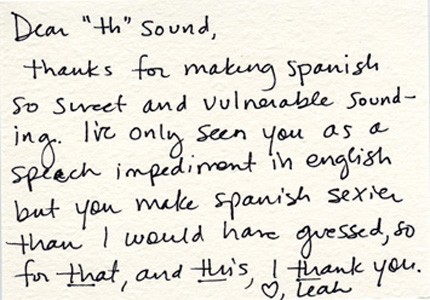 Dear "th" sound,
thanks for making spanish
so sweet and vulnerable sound-
ing. I've only seen you as a
speech impediment in english
but you make spanish sexier
than I would have guessed, so
for that, and this, I thank you.
♡, Leah